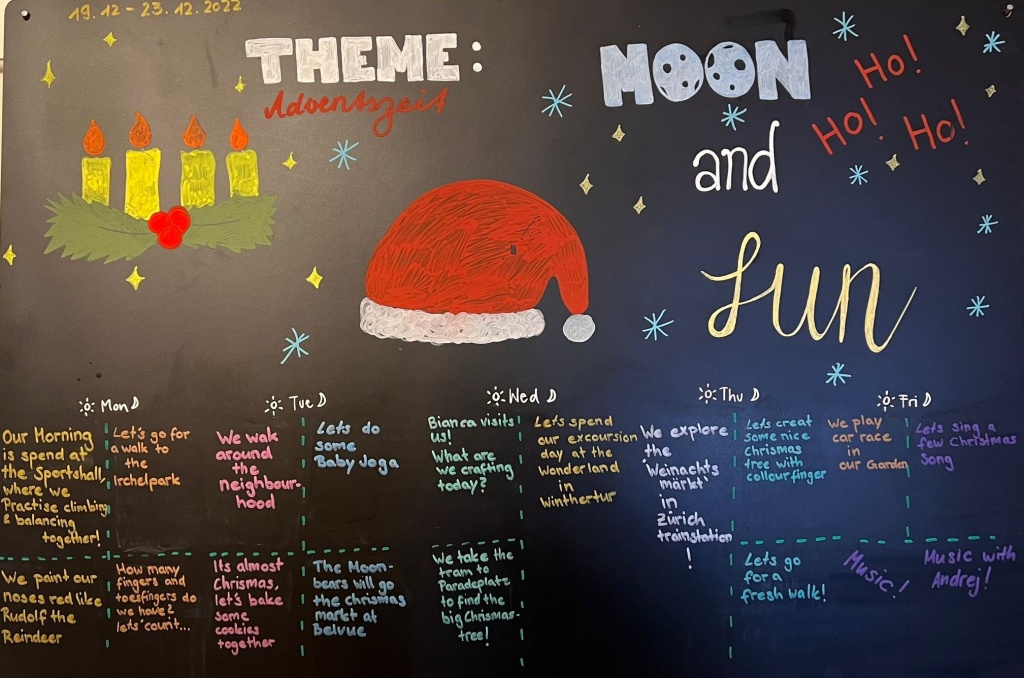 19.12 - 23.12.2022
THEME:
Adventszeit
MOON
and
Fun
Ho!
Ho!
Ho!
Mon
Tue
Wed
Thu
Fri
Our Morning
is spend at
the Sportshall,
where we
Practise climbing
& balancing
together!
Let's go for
a walk to
the
Irchelpark
We wak
around
the
neighbour-
hood
Lets do
some
Baby Joga
Bianca visits
us!
What are
we crafting
today?
Lets spend
our excoursion
day at the
Wonderland
in
Winthertur
We explore
the
"Weinachts
märkt"
in
Zürich
trainstation
!
Lets creat
some nice
chrismas
tree with
collourfinger
We play
car race
in
our Garden
Lets sing a
few Christmas
Song
We paint our
noses red like
Rudolf the
Reindeer
How many
fingers and
toesfingers do
we have?
lets count...
Its almost
Chrismas,
let's bake
some
cookies
together
The Moon-
bears will go
the chrismas
market at
Belvue
We take the
tram to
Paradeplatz
to find the
big Chrismas-
tree!
Lets go
for a
fresh walk!
Music!
Music with
Andrej!